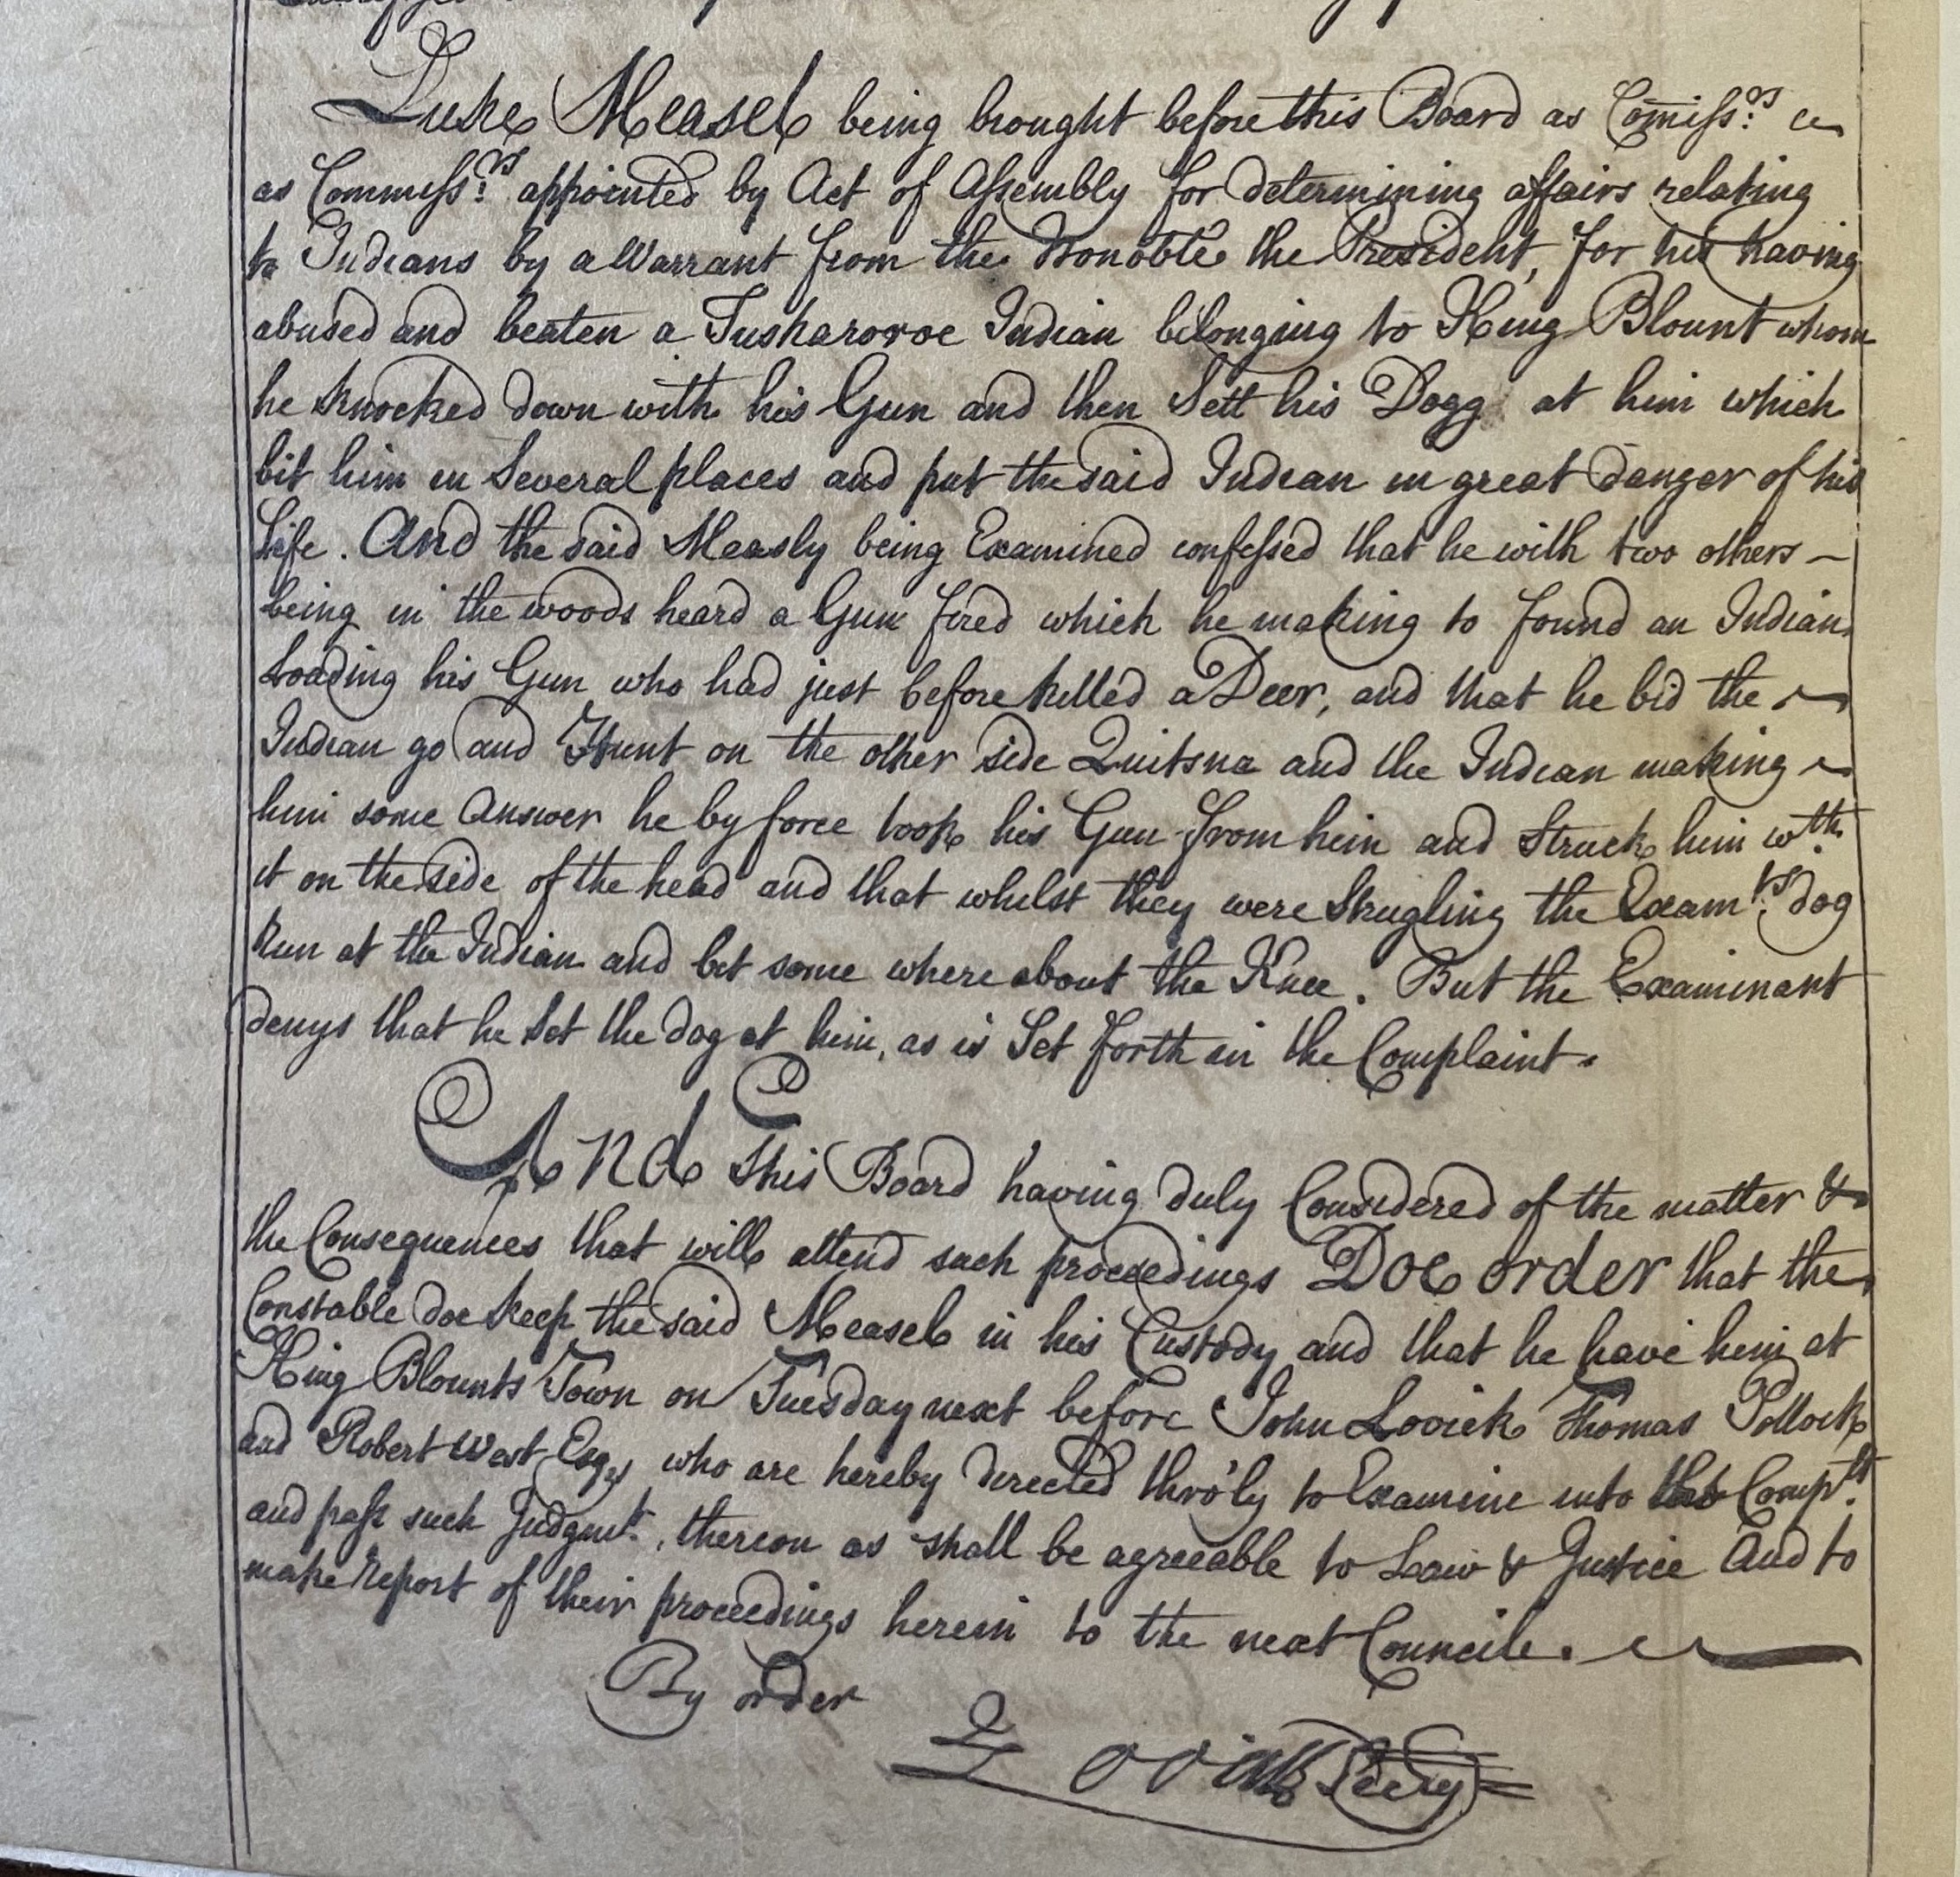 Luke Measel being brought before this Board as Com̄iss:rs
as Commiss:rs appointed by Act of Assembly for determining affairs relating
to Indians by a Warrant from the Honoble the President, for his having
abused and beaten a Tuskaroroe Indian belonging to King Blount whom
he knocked down with his Gun and then Sett his Dogg at him which
bit him in Several places and put the said Indian in great danger of his
Life. And the said Measly being Examined confessed that he with two others –
being in the woods heard a Gun fired which he making to found an Indian
Loading his Gun who had just before killed a Deer, and that he bid the
Indian go and Hunt on the other side Quitsna and the Indian making
him some Answer he by force took his Gun from him and Struck him wth.
it on the side of the head and that whilst they were Strugling the Exam:ts dog
Run at the Indian and bit some where about the Knee. But the Examinant
denys that he Set the dog at him, as is Set forth in the Complaint.
And This Board having duly Considered of the matter &
the Consequences that will attend such proceedings Doe order that the
Constable doe keep the said Measel in his Custody and that he have him at
King Blounts Town on Tuesday next before John Lovick Thomas Pollock
and Robert West Esqs who are hereby directed thro'ly to Examine into the Comp:lt
and pass such Judgmt. thereon as shall be agreeable to Law & Justice And to
make Report of their proceedings herein to the next Councile.
By order
J Lovick Secry